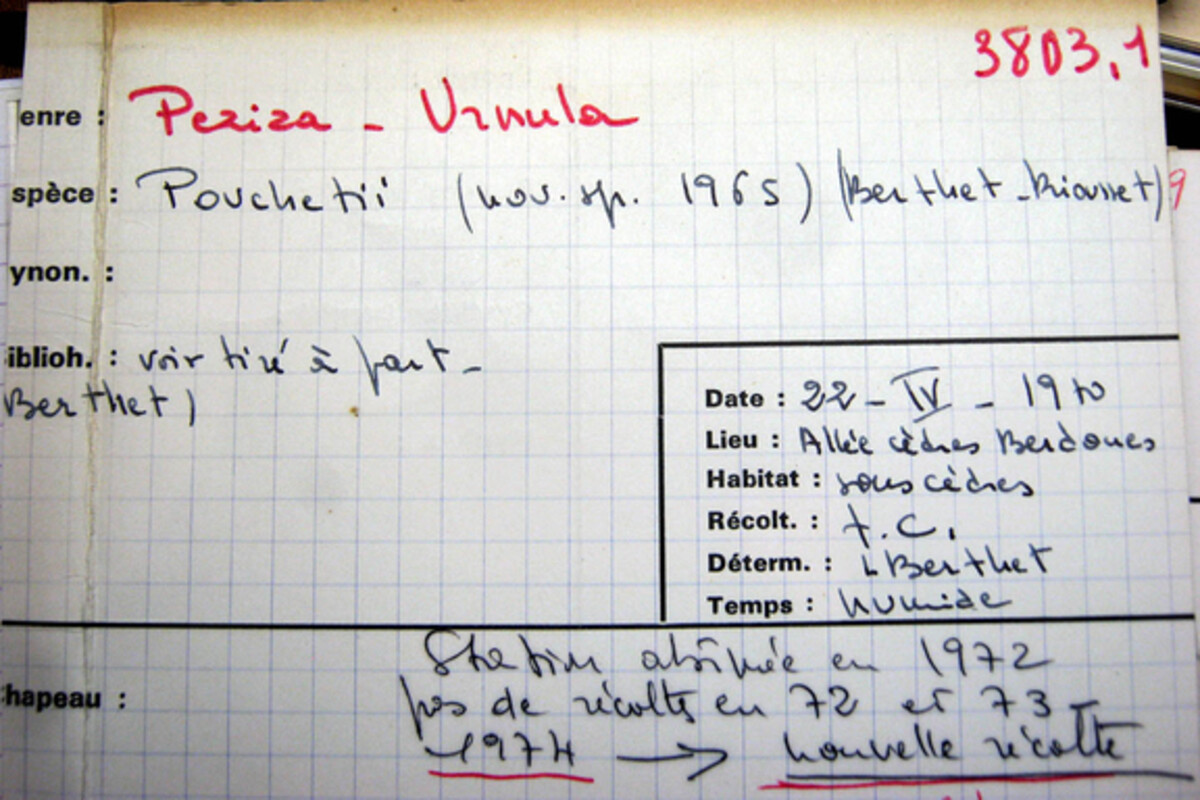 3803,1
enre : Peziza - Urnula
spèce : Pouchetii (nov. sp. 1965) (Berthet - Riousset) 9
ynon. :
iblioh. : voir tiré à part -
Berthet)
Date : 22 - IV - 1970
Lieu : Allée cèdres Berdoues
Habitat : sous cèdres
Récolt. : t.C.
Déterm. : Berthet
Temps : humide
Station abîmée en 1972
hapeau : pas de récolte en 72 et 73 -
1974 → nouvelle récolte